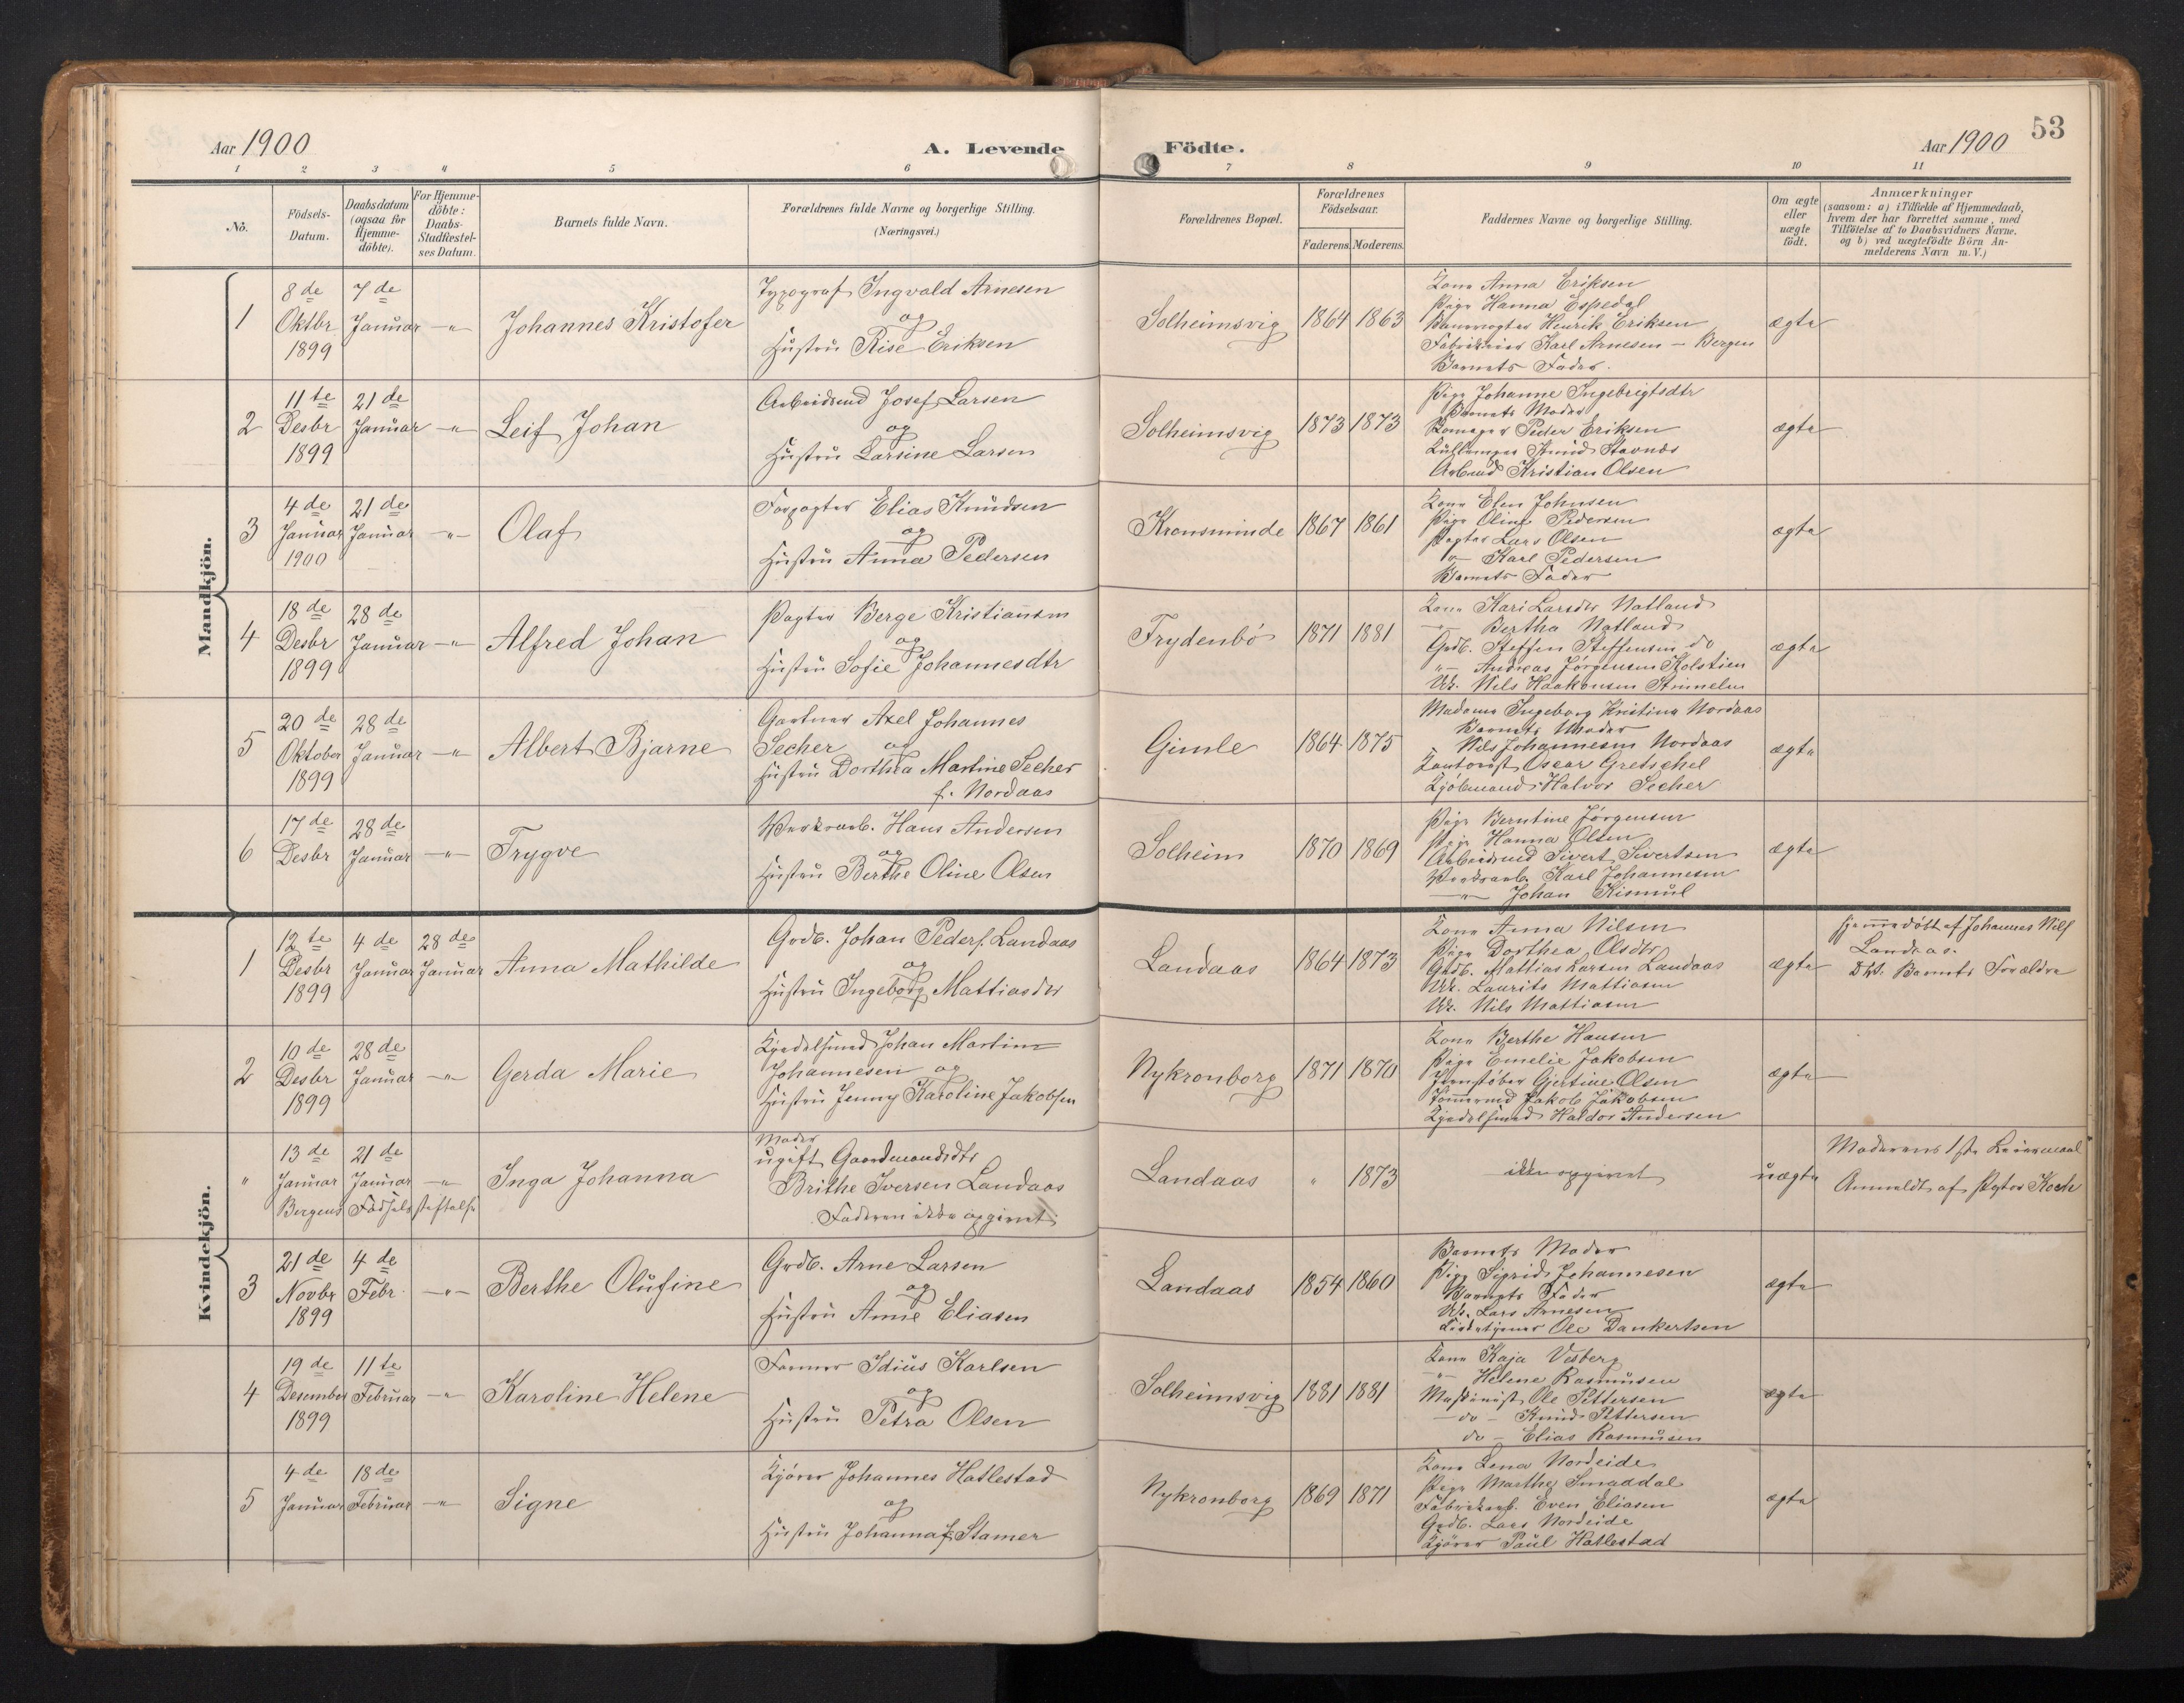 Aar 1900
A. Levende Födte.
Aar 1900
53
1 2 3 4 5 6 7 8 9 10 11
No.
Födsels-
Datum.
Daabsdatum
(ogsaa for
Hjemme-
döbte).
For Hjemme-
döbte:
Daabs-
Stadfæstel-
ses Datum.
Barnets fulde Navn.
Forældrenes fulde Navne og borgerlige Stilling.
(Næringsvei.)
Forældrenes Bopæl.
Forældrenes
Födselsaar.
Faderens. Moderens.
Faddernes Navne og borgerlige Stilling.
Om ægte
eller
uægte
födt.
Anmærkninger
(saasom: a) i Tilfælde af Hjemmedaab,
hvem der har forrettet samme, med
Tilföielse af to Daabsvidners Navne.
og b) ved uægtefödte Börn An-
melderens Navn m. V.)
Mandkjön.
1
8de
Oktbr
1899
7de
Januar
-"-
Johannes Kristofer
Typograf Ingvald Arnesen
og
Hustru Rise Eriksen
Solheimsvig
1864 1863
Kone Anna Eriksen
Pige Hanna Espedal
Henrik Eriksen
Karl Arnesen - Bergen
Barnets Fader.
ægte
2
11te
Desbr
1899
21de
Januar
-"-
Leif Johan
Arbeidsmd Josef Larsen
og
Hustru Larsine Larsen
Solheimsvig
1873 1873
Pige Johanne Ingebrigtsdtr
Barnets Moder
Peder Eriksen
Knud Stavnes
Arbmd Kristian Olsen
ægte
3
4de
Januar
1900
21de
Januar
-"-
Olaf
Forpagter Elias Knudsen
og
Hustru Anna Pedersen
Kronsminde
1867 1861
Kone Elen Johnsen
Pige Oline Pedersen
Pagter Lars Olsen
-"- Karl Pedersen
Barnets Fader
ægte
4
18de
Desbr
1899
28de
Januar
-"-
Alfred Johan
Pagter Berge Kristiansen
og
Hustru Sofie Johannesdtr
Frydenbö
1871 1881
Kone Kari Larsdtr Natland
-"- Bertha Natland
Grdb. Steffen Steffensen do
"- Andreas Jörgensen Kolstien
Uk. Nils Haakonsen
ægte
5
20de
Oktober
1899
28de
Januar
-"-
Albert Bjarne
Gartner Axel Johannes
Secher og
Hustru Dorthea Martine Secher
f. Nordaas
Gimle
1864 1875
Madame Ingeborg Kristine Nordaas
Barnets Moder
Nils Johannesen Nordaas
Kontorist Oscar Gretschel
Kjöbmand Halvor Secher
ægte
6
17de
Desbr
28de
Januar
-"-
Trygve
Værksarb. Hans Andersen
og
Hustru Berthe Oline Olsen
Solheim
1870 1869
Pige Berntine Jörgensen
Pige Hanna Olsen
Arbeidsmd Sivert Sivertsen
Værksarb. Karl Johannesen
-"- Johan Kismül
ægte
Kvindekjön.
1
12te
Desbr
1899
4de
Januar
28de
Januar
Anna Mathilde
Grdb. Johan Peders. Landaas
og
Hustru Ingeborg Mattiasdtr
Landaas
1864 1873
Kone Anna Nilsen
Pige Dorthea Olsdtr
Grdb. Mattias Larsen Landaas
Uk. Laurits Mattiasen
Uk. Nils Mattiasen
ægte
Hjemmedöbt af Johannes Nils
Landaas.
Barnets Forældre
2
10de
Desbr
1899
28de
Januar
-"-
Gerda Marie
Kjedelsmed Johan Martin
Johannesen og
Hustru Jenny Karoline Jakobsen
Nykronborg
1871 1870
Kone Berthe Hansen
Pige Emelie Jakobsen
Jernstöber Gjertine Olsen
Tömmermd Jakob Jakobsen
Kjedelsmed Haldor Andersen
ægte
"
13de
Januar
21de
Januar
-"-
Bergens Födselsstiftelse
Inga Johanna
Moder
ugift Gaardmandsdtr
Brithe Iversen Landaas
Faderen ikke opgivet
Landaas
" 1873
ikke opgivet
uægte
Moderens 1ste Leiermaal
Anmeldt af Pastor Koch
3
21de
Novbr
1899
4de
Febr.
-"-
Berthe Olufine
Grdb. Arne Larsen
og
Hustru Anne Eliasen
Landaas
1854 1860
Barnets Moder
Pige Sigrid Johannesen
Barnets Fader
Uk. Lars Arnesen
Ole Dankertsen
ægte
4
19de
Desember
1899
11te
Februar
-"-
Karoline Helene
Former Idius Karlsen
og
Hustru Petra Olsen
Solheimsvig
1881 1881
Kone Kaja Vesberg
-"- Helene Rasmusen
Maskinist Ole Pettersen
- do - Knud Pettersen
do - Elias Rasmusen
ægte
5
4de
Januar
18de
Februar
-"-
Signe
Kjörer Johannes Hatlestad
og
Hustru Johanna f. Stamer
Nykronborg
1869 1871
Kone Lena Nordeide
Pige Marthe Smaddal
Fabrikarb. Even Eliasen
Grdb. Lars Nordeide
Kjörer Paul Hatlestad
ægte